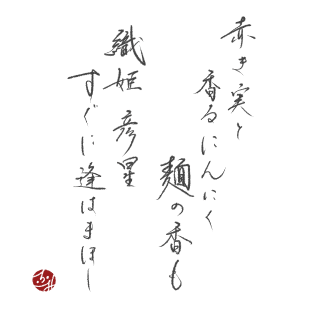 赤き実と
香るにんにく
麺の香も
織姫彦星
すぐに逢はまほし